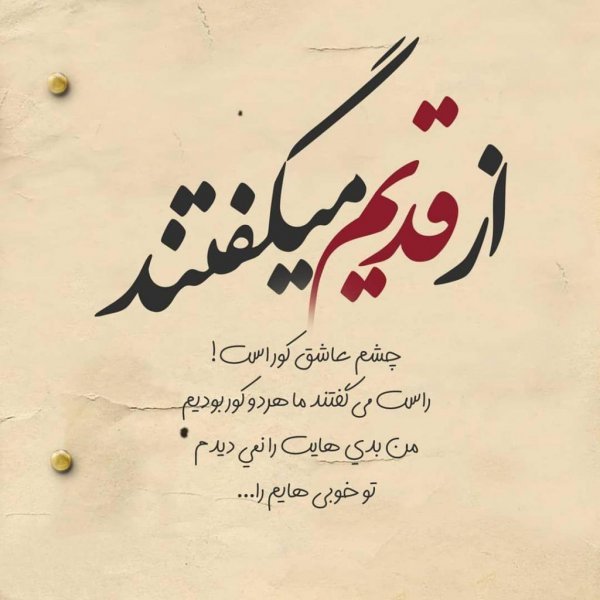 از قدیم میگفتند
چشم عاشق کور است!
راست می گفتند ما هر دو کور بودیم
من بدي هایت را نمي دیدم
تو خوبی هایم را...